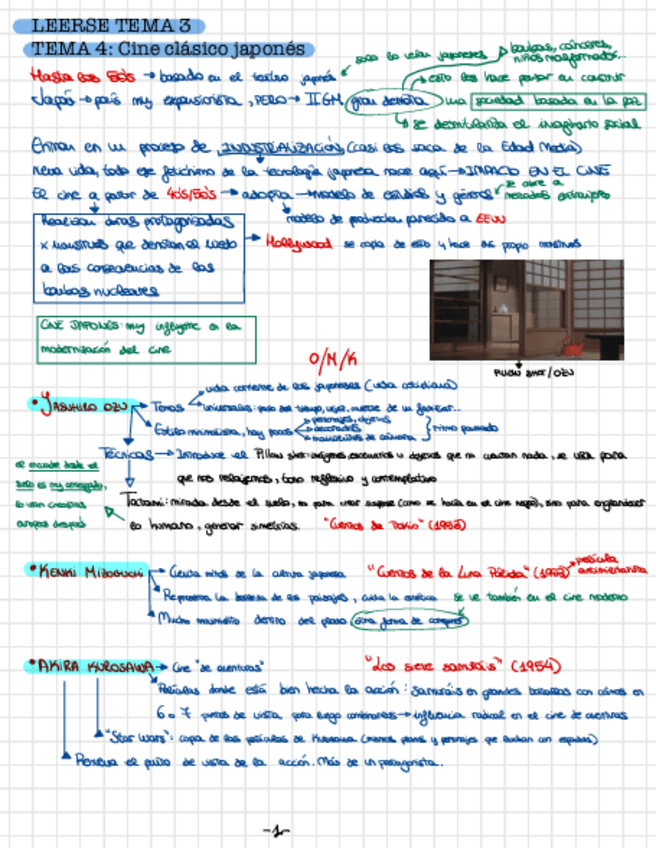 LEERSE TEMA 3
TEMA 4: Cine clásico japonés
solo lo veían japoneses
bombas, cánceres, niños malformados...
Hasta los 50's → basado en el teatro japonés
esto les hace pensar en construir
Japón → país muy expansionista, PERO → IIGM gran derrota una sociedad basada en la paz
se desmilitariza el imaginario social
Entran en un proceso de INDUSTRIALIZACIÓN (casi los saca de la Edad Media)
nueva vida, todo ese fetichismo de la tecnología japonesa nace aquí → IMPACTO EN EL CINE
El cine a partir de 40's/50's → adopta → modelo de estudios y géneros
se abre a mercados extranjeros
modelo de producción parecido a EEUU
Realizan obras protagonizadas
x monstruos que denotan el miedo
a las consecuencias de las
bombas nucleares
Hollywood se copia de esto y hace sus propios monstruos
CINE JAPONÉS: muy influyente en la
modernización del cine
O/M/K
PILLOW SHOT/OZU
• YASUJIRO OZU
Temas
vida corriente de los japoneses (vida cotidiana)
universales: paso del tiempo, vejez, muerte de un familiar...
Estilo minimalista, hay pocos
personajes, objetos
decorados
movimientos de cámara
ritmo pausado
Técnicas → Introduce el Pillow shot: imágenes, escenarios u objetos que no cuentan nada, se usa para
que nos relajemos, tono reflexivo y contemplativo
Tatami: mirada desde el suelo, no para crear suspense (como se hacía en el cine negro), sino para engrandecer
lo humano, generar simetrías. "Cuentos de Tokio" (1953)
el encuadre desde el
suelo es muy arriesgado,
lo usan cineastas
europeos después
• KENKI MIZOGUCHI
Cuenta mitos de la cultura japonesa
"Cuentos de la Luna Pálida" (1953)
película antimilitarista
Representa la belleza de los paisajes, cuida la estética
se ve también en el cine moderno
Mucho movimiento dentro del plano (otra forma de componer)
• AKIRA KUROSAWA → Cine "de aventuras"
"Los siete samuráis" (1954)
Películas donde está bien hecha la acción: Samuráis en grandes batallas con cámaras en
6 o 7 puntos de vista, para luego combinarlas → influencia radical en el cine de aventuras
"Star Wars": copia de las películas de Kurosawa (mismos planos y personajes que luchan con espadas)
Renueva el punto de vista de la acción. Más de un protagonista.
-1-